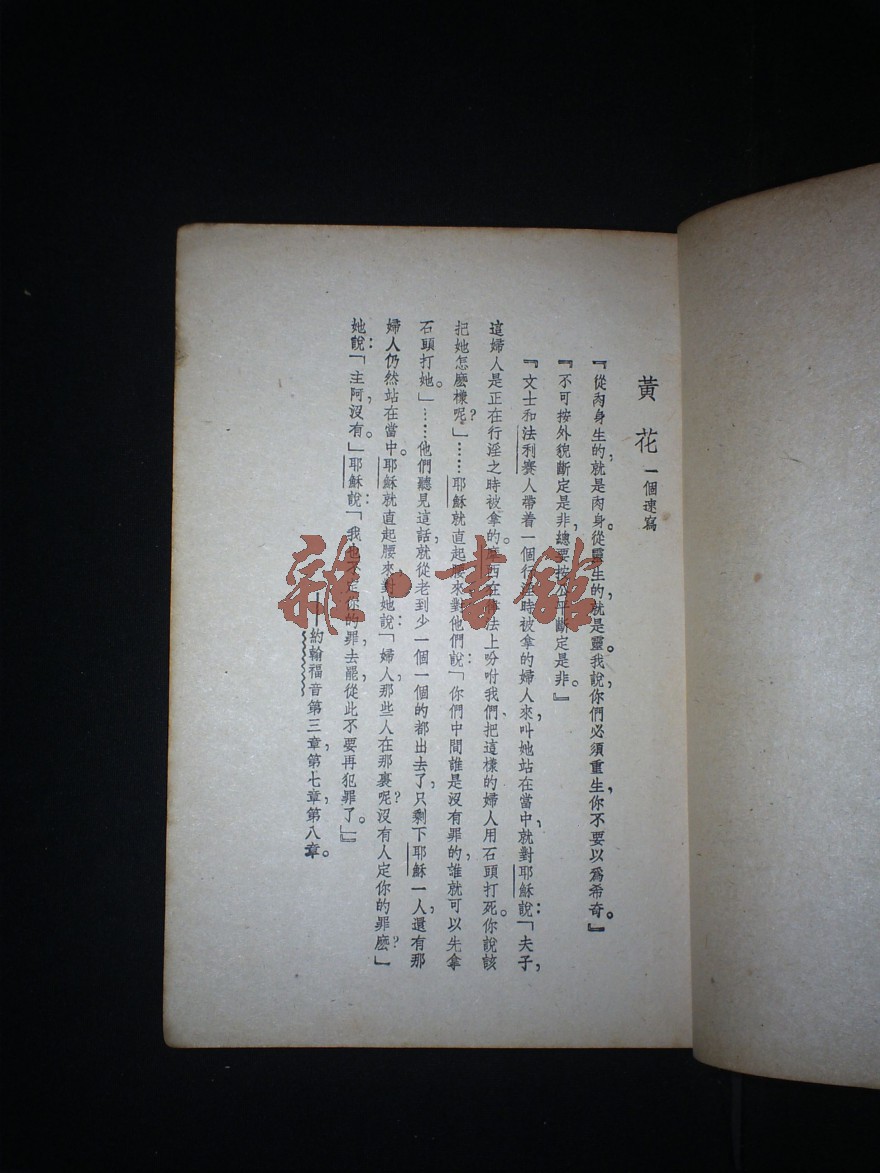 黃花 一個速寫
『從肉身生的，就是肉身。從靈生的，就是靈。我說，你們必須重生，你不要以爲希奇。』
『不可按外貌斷定是非，總要按公平斷定是非。』
『文士和法利賽人帶着一個行淫時被拿的婦人來，叫她站在當中，就對耶穌說：「夫子，
這婦人是正在行淫之時被拿的。摩西在律法上吩咐我們、把這樣的婦人用石頭打死。你說該
把她怎麼樣呢？」……耶穌就直起腰來對他們說：「你們中間誰是沒有罪的，誰就可以先拿
石頭打她。」……他們聽見這話，就從老到少一個一個的都出去了，只剩下耶穌一人，還有那
婦人仍然站在當中。耶穌就直起腰來，對她說：「婦人，那些人在那裏呢？沒有人定你的罪麽？」
她說：「主阿，沒有。」耶穌說：「我也不定你的罪，去罷，從此不要再犯罪了。」』
——約翰福音第三章，第七章，第八章。
雜·書館